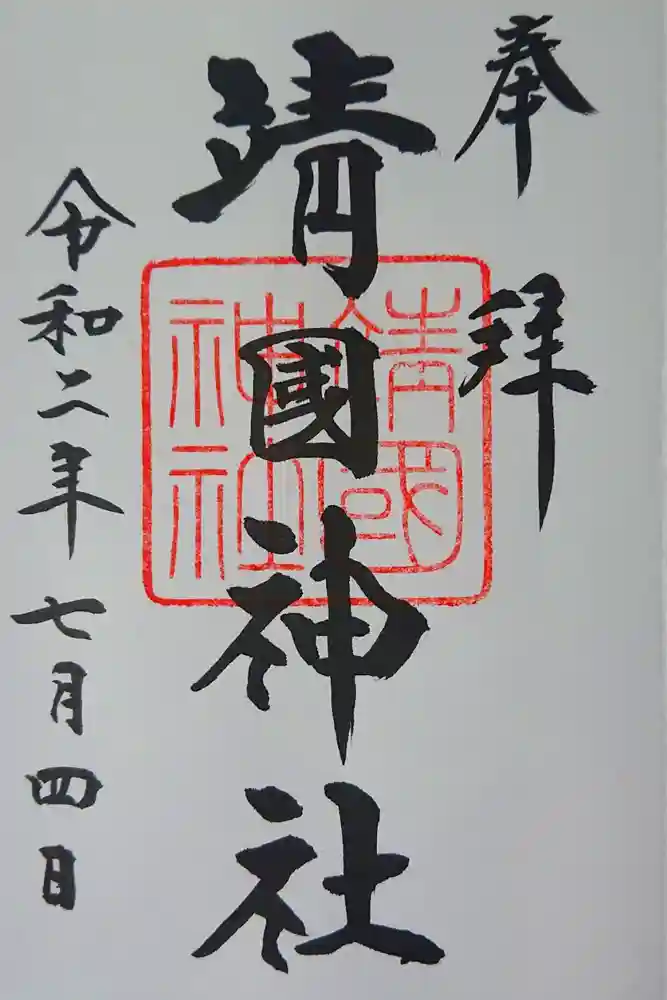 奉拝
靖國神社
靖國
神社
令和二年七月四日